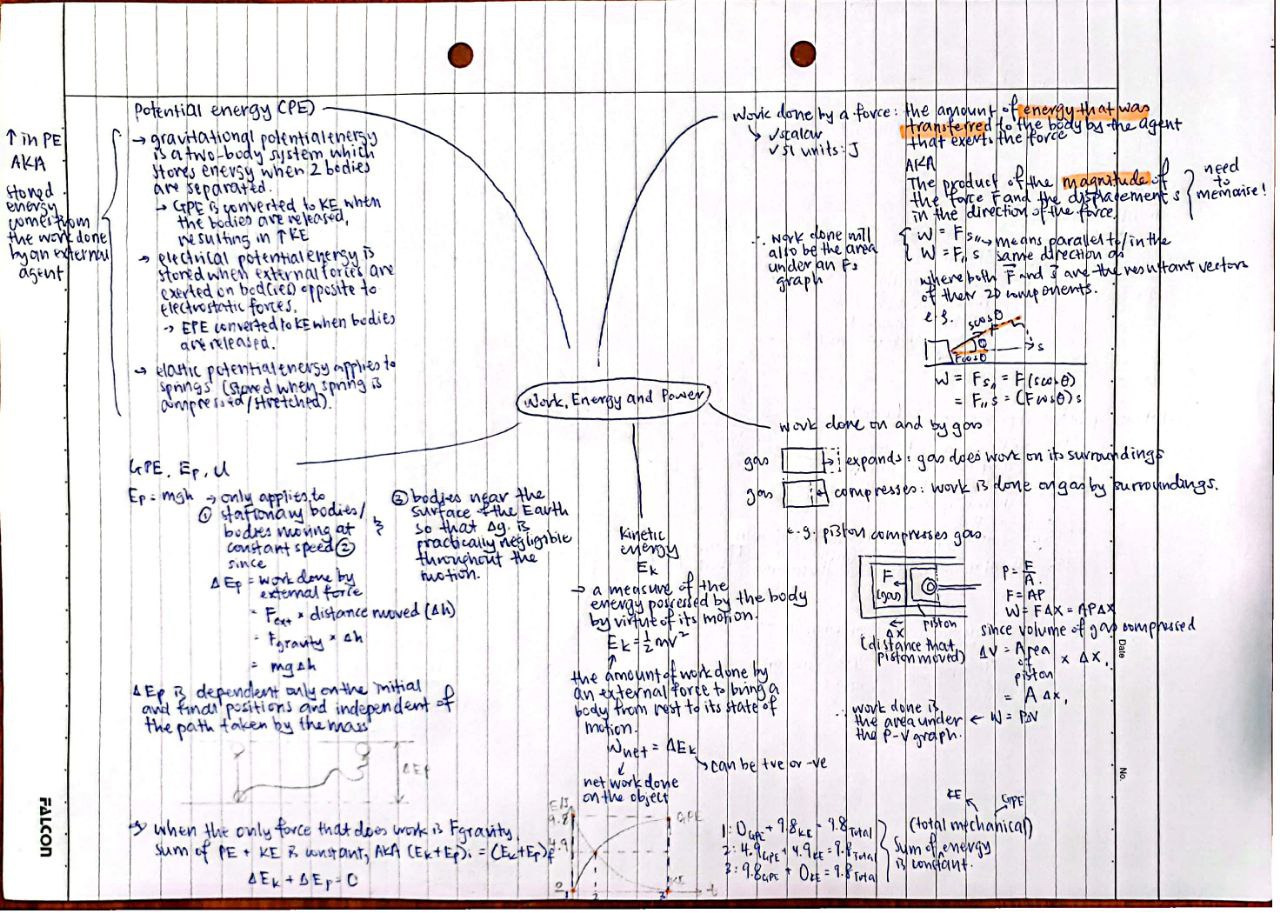 Potential energy (PE)
↑ in PE
AKA
stored
energy
comes from
the work done
by an external
agent
→ gravitational potential energy
is a two-body system which
stores energy when 2 bodies
are separated.
→ GPE is converted to KE when
the bodies are released,
resulting in ↑KE
→ electrical potential energy is
stored when external forces are
exerted on bod(ies) opposite to
electrostatic forces.
→ EPE converted to KE when bodies
are released.
→ elastic potential energy applies to
springs (stored when spring is
compressed/stretched).
Work done by a force: the amount of energy that was
transferred to the body by the agent
that exerts the force
↳ ✓scalar
✓SI units: J
AKA
The product of the magnitude of
the force F and the displacement s
in the direction of the force.
need
to
memorise!
∴ work done will
also be the area
under an Fs
graph
W = Fs∥ → means parallel to/in the
W = F∥s same direction as
where both F and s are the resultant vectors
of their 2D components.
e.g.
scosθ
F
θ
s
Fcosθ
W = Fs∥ = F(scosθ)
= F∥s = (Fcosθ)s
Work, Energy and Power
work done on and by gas
gas expands: gas does work on its surroundings
gas compresses: work is done on gas by surroundings.
e.g. piston compresses gas
F
(gas)
Δx
piston
(distance that
piston moved)
P = F/A
F = AP
W = FΔx = APΔx
since volume of gas compressed
ΔV = Area of piston × Δx,
= AΔx,
← W = PΔV
∴ work done is
the area under
the P-V graph.
GPE, Ep, U
Ep = mgh → only applies to
① stationary bodies/
bodies moving at
constant speed ②
since
② bodies near the
surface of the Earth
so that Δg is
practically negligible
throughout the
motion.
ΔEp = work done by
external force
= Fext × distance moved (Δh)
= Fgravity × Δh
= mgΔh
ΔEp is dependent only on the initial
and final positions and independent of
the path taken by the mass
ΔEp
→ when the only force that does work is Fgravity,
sum of PE + KE is constant, AKA (Ek+Ep)i = (Ek+Ep)f
ΔEk + ΔEp = 0
kinetic
energy
Ek
→ a measure of the
energy possessed by the body
by virtue of its motion.
Ek = ½mv²
↑
the amount of work done by
an external force to bring a
body from rest to its state of
motion.
Wnet = ΔEk
↳ can be +ve or -ve
↓
net work done
on the object
E/J
9.8
4.9
0
GPE
KE
t
1 2 3
KE GPE
1: 0GPE + 9.8KE = 9.8Total
2: 4.9GPE + 4.9KE = 9.8Total
3: 9.8GPE + 0KE = 9.8Total
(total mechanical)
sum of energy
is constant.
Date
No.
FALCON